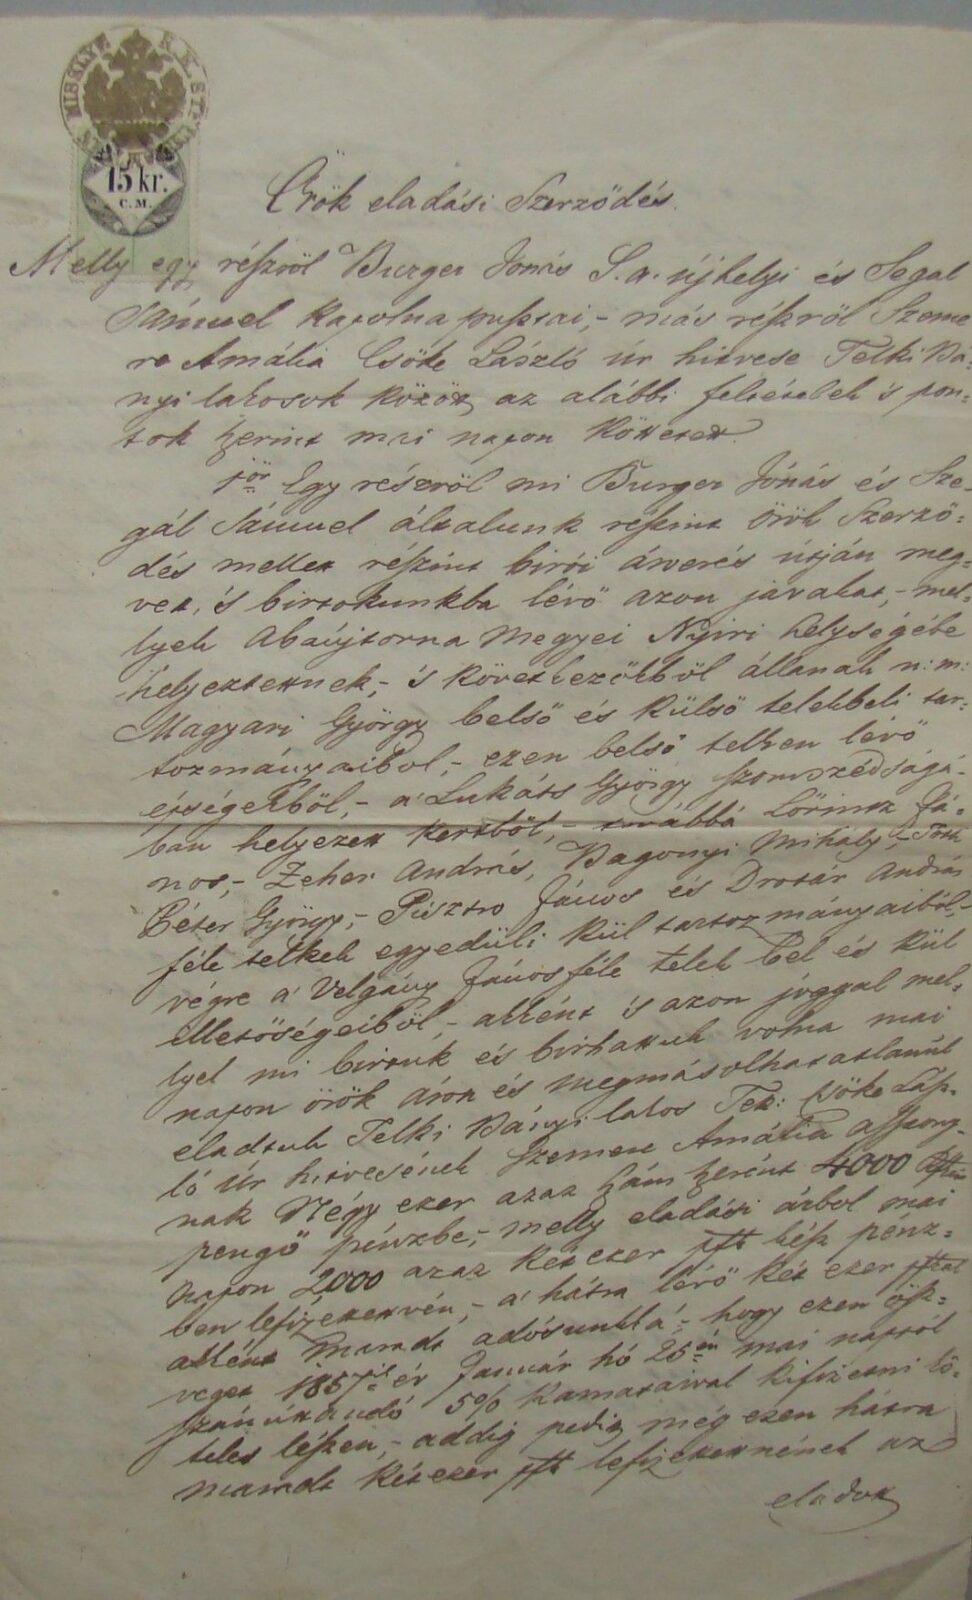 15 kr.
C.M.
Örök eladási Szerződés.
Melly egy részről Burger Jonás S. a. újhelyi és Segal
Sámuel Kapolna pusztai,- más részről Szeme
re Amália Csőke László úr hitvese Telki Bá-
nyi lakosok között az alábbi feltételek 's pon-
tok szerint mai napon köttetett.
1ör Egy részről mi Burger Jónás és Sze-
gál Sámuel általunk részint örök Szerző-
dés mellet részint birói árverés útján meg-
vet, 's birtokunkba lévő azon javakat,- mel-
lyek Abaújtorna Megyei Nyiri helységébe
helyeztettnek,- 's következőkből állanak n: m:
Magyari György belső és külső telekbeli tar-
tozmányaibol,- ezen belső telken lévő
épségekből,- a' Lukáts György szomszédságá-
ban helyezett kertből,- továbbá Lőrintz Já-
nos,- Zeher András, Bagonyi Mihály,- Tóth
Péter György,- Pisztro János és Drotár András
féle telkek egyedüli kül tartozmányaiból,-
végre a' Velgány János féle telek bel és kül
illetőségeiből,- akként 's azon joggal mel-
lyel mi birtuk és birhattuk volna mai
napon örök áron és megmásolhatatlanúl
eladtuk Telki Bányi lakos Tek: Csőke Lász-
ló úr hitvesének Szemere Amália asszony-
nak Négy ezer azaz szám szerént 4000 pftu
pengő pénzbe,- melly eladási árbol mai
napon 2000 azaz két ezer pft kész pénz-
ben lefizettetvén,- a' hátra lévő két ezer pftal
akként maradt adósunkká,- hogy ezen ösz-
veget 1857ik év Január hó 25én mai naptól
számítandó 5% kamatával kifizetni kö-
teles lészen,- addig pedig még ezen hátra
maradt két ezer pft lefizettetnének az
eladott